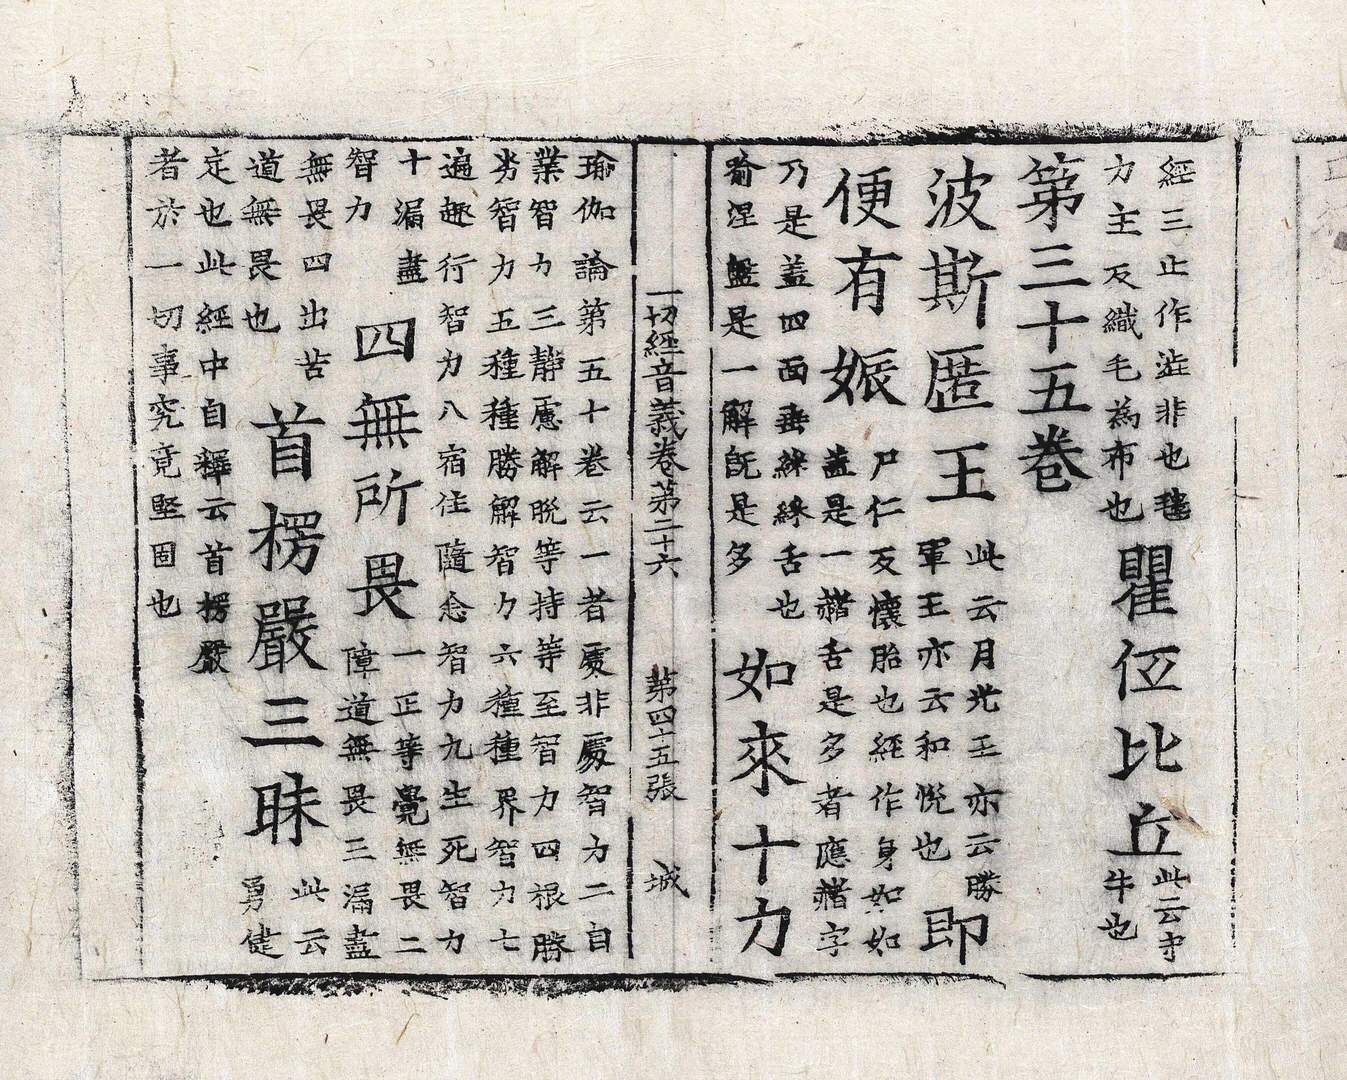 經三止作澁非也毯
力主反織毛為布也
瞿仾比丘
此云守
牛也
第三十五卷
波斯匿王
此云月光王亦云勝
軍王亦云和悅也
即
便有娠
尸仁反懷胎也經作身如如
蓋是一舌是多者應字
乃是蓋四面垂緣緣舌也
喻涅盤是一解旣是多
如來十力
一切經音義卷第二十六 第四十五張 城
瑜伽論第五十卷云一者處非處智力二自
業智力三靜慮解脫等持等至智力四根勝
劣智力五種種勝解智力六種種界智力七
遍趣行智力八宿住隨念智力九生死智力
十漏盡
智力
四無所畏
一正等覺無畏二
障道無畏三漏盡
無畏四出苦
道無畏也
首楞嚴三昧
此云
勇健
定也此經中自釋云首楞嚴
者於一切事究竟堅固也